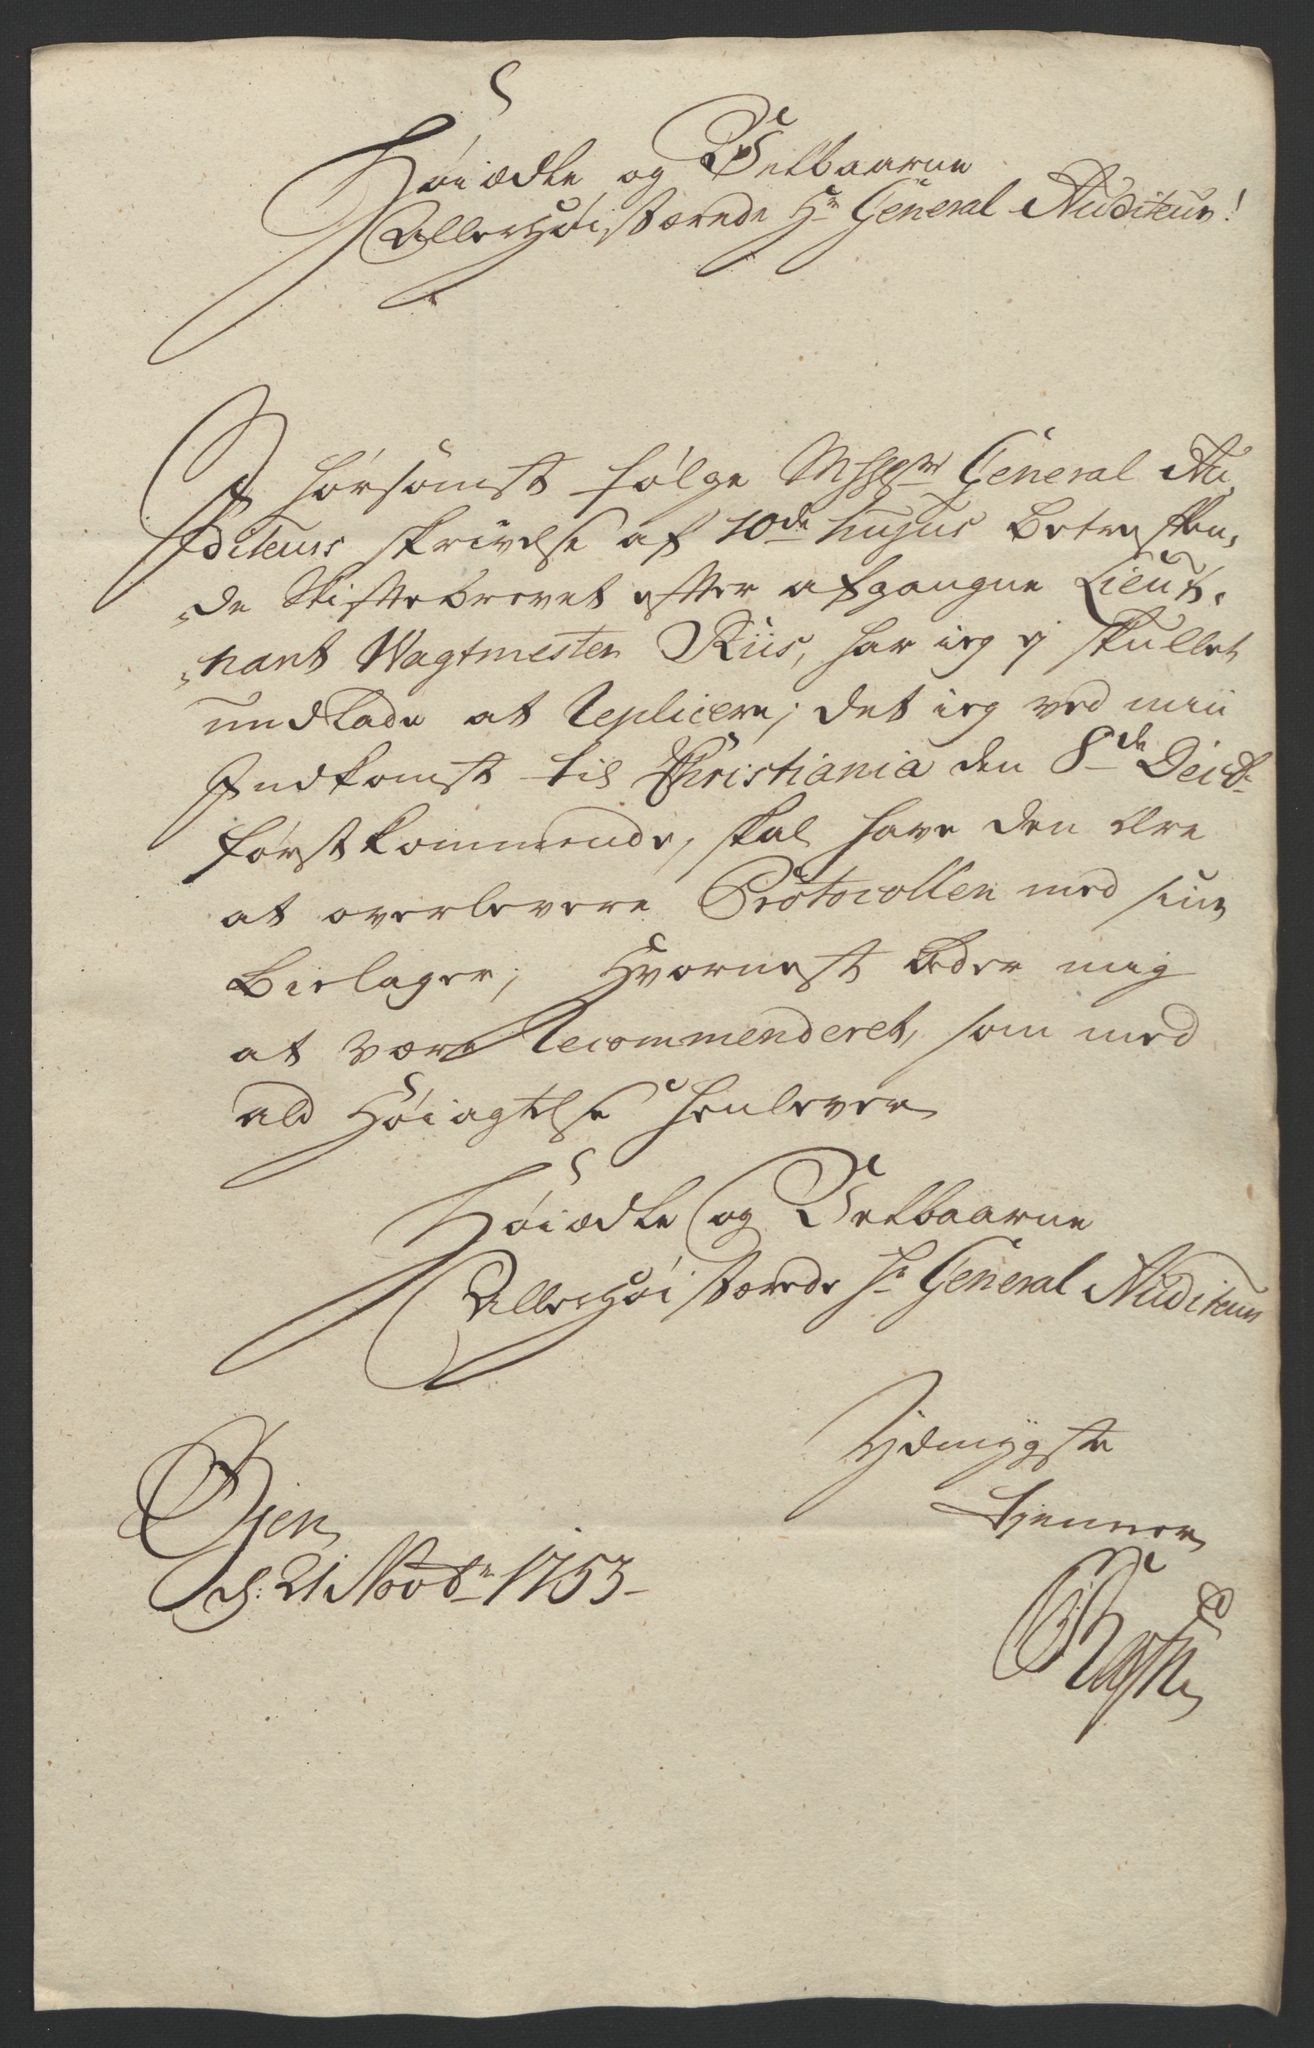 Høiædle og Velbaarne
Allerhøistærede Hr General Auditeur!
I hørsomst følge Hr General Au,
diteurs skrivelse af 10de hujus betreffen,
„de Skiftebrevet efter afgangne Lieut,
„nant Wagtmester Riis, har ieg ej skullet
undlade at Replicere; det ieg ved min
Indkomst til Christiania den 8de Decbr
førstkommende, skal have den Ære
at overlevere Protocollen med sine
Bielager; Hvornest beder mig
at være Recommenderet, som med
ald Høiagtelse henlever
Høiædle og Velbaarne
Allerhøistærede Hr General Auditeurs
Ydmygste
tjenner
d: 21 Novbr 1753